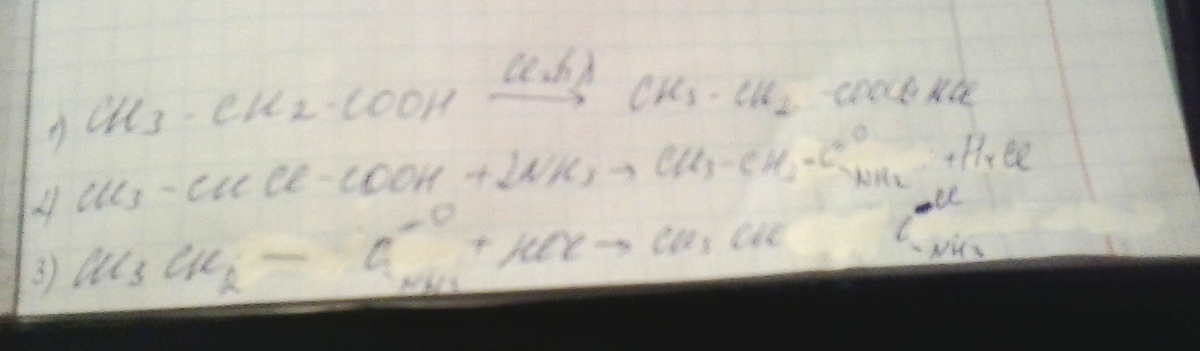 1) CH3 - CH2 - COOH → CH3 - CH2 -COOCl
2) CH3 - CHCl - COOH + 2NH3 → CH3 - CH2 - C O NH2 + H Cl
3) CH3 CH2 — C O NH2 + HCl → CH3 CH C Cl NH3